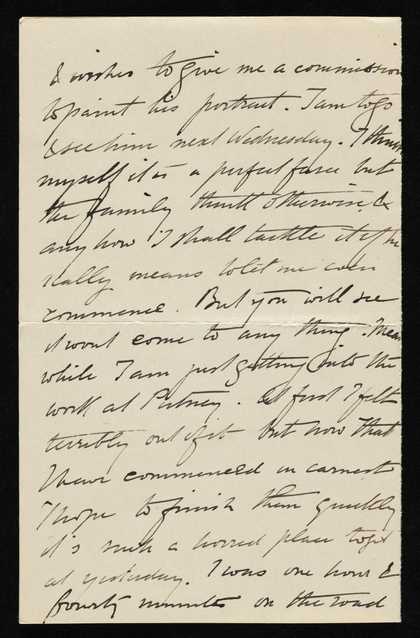 & wishes to give me a commission
to paint his portrait. I am to go
& see him next Wednesday. I think
myself it is a perfect farce but
the family think otherwise, &
any how I shall tackle it if he
really means to let me even
commence. But you will see
it wont come to any thing. Mean
while I am just getting into the
work at Putney. At first I felt
terribly out of it but now that
I have commenced in earnest
I hope to finish them quickly
it's such a horrid place to get
at yesterday. I was one hour &
fourty minutes on the road